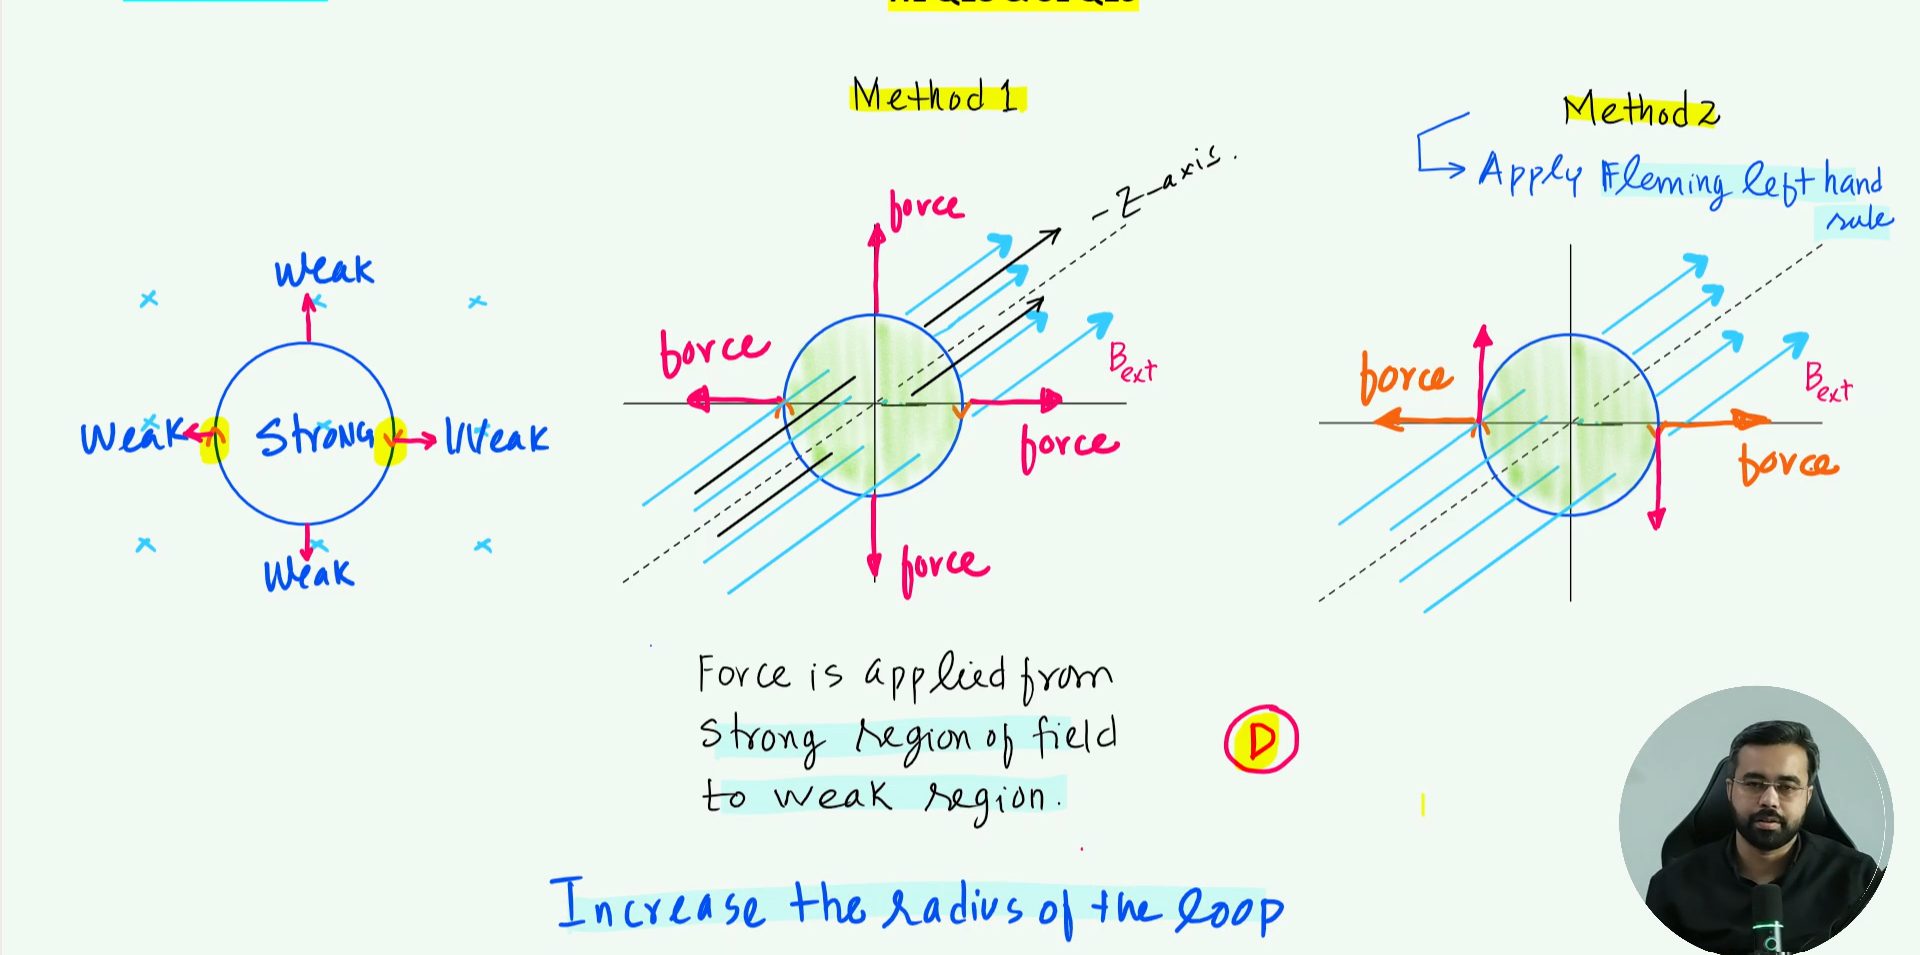 Method 1
Method 2
Apply Fleming left hand
rule
- Z-axis.
force
force
Bext
force
force
Weak
Weak
Strong
Weak
Weak
force
Bext
force
Force is applied from
strong region of field
to weak region.
D
Increase the radius of the loop